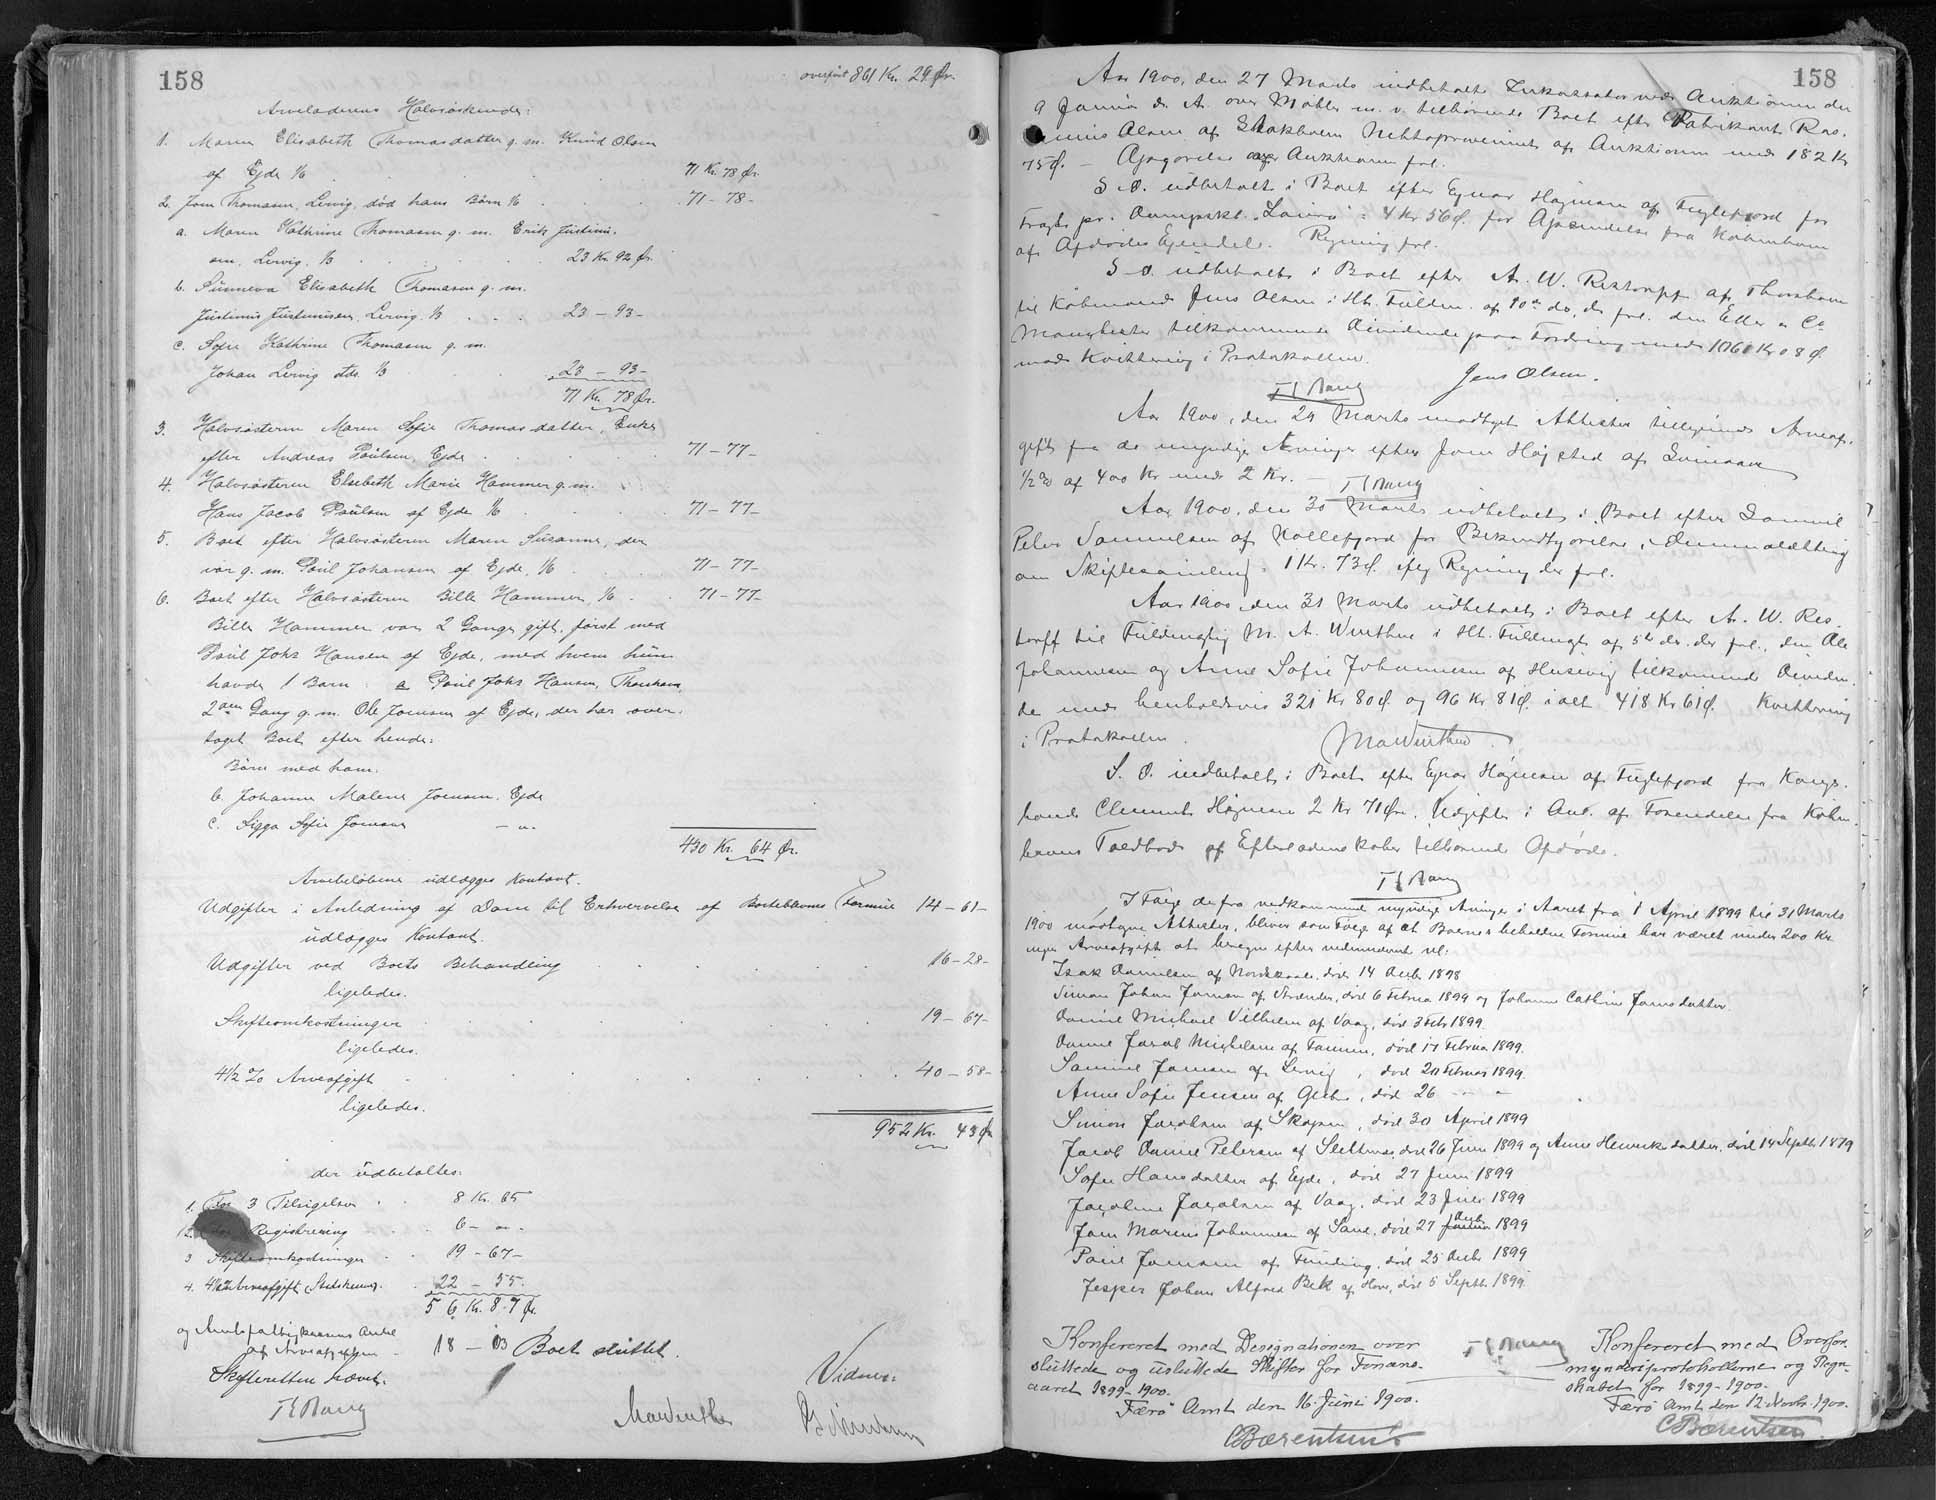 158
overført 861 Kr. 29 Ør.
Arveladerens Halvsøskende:
1. Maren Elisabeth Thomasdatter g. m. Knud Olsen
af Ejde 1/6 71 Kr. 78 Ør.
2. Joen Thomasen, Lervig, død hans Børn 1/6 71-78-
a. Maren Kathrine Thomasen g. m. Erik Justinu-
sen, Lervig, 1/3 23 Kr. 92 Ør.
b. Sunneva Elisabeth Thomasen g. m.
Justinus Justinussen, Lervig 1/3 23-93-
c. Sofie Kathrine Thomasen g. m.
Johan Lervig stds. 1/3 23-93-
71 Kr. 78 Ør.
3. Halvsøsteren Maren Sofie Thomasdatter, Enke
efter Andreas Poulsen, Ejde 71-77-
4. Halvsøsteren Elsebeth Marie Hammer g. m.
Hans Jacob Poulsen af Ejde 1/6 71-77-
5. Boet efter Halvsøsteren Maren Susanne, der
var g. m. Poul Johansen af Ejde, 1/6 71-77-
6. Boet efter Halvsøsteren Billa Hammer, 1/6 71-77-
Billa Hammer var 2 Gange gift, først med
Poul Johs Hansen af Ejde, med hvem hun
havde 1 Barn: a Poul Johs Hansen, Thorshavn,
2den Gang g. m. Ole Joensen af Ejde, der har over-
taget Boet efter hende:
Børn med ham:
b. Johanne Malene Joensen, Ejde
c. Sigga Sofie Joensen -"-
430 Kr. 64 Ør.
Arvebeløbene udlægges kontant.
Udgifter i Anledning af Dom til Erhvervelse af Formue 14-61-
udlægges kontant.
Udgifter ved Boets Behandling 16-28-
ligeledes.
Skifteomkostninger 19-67-
ligeledes.
4 1/2 % Arveafgift 40-58-
ligeledes.
952 Kr. 43 Ør
der udbetaltes:
1. For 3 Tilsigelser 8 Kr. 65
2. Registrering 6-"-
3 Skifteomkostninger 19-67-
4. 4 1/2 % Arveafgift (Statskassen) 22-55-
56 Kr. 87 Ør.
og Amtsfattigkassens Andel
af Arveafgiften 18-03 Boet sluttet.
Skifteretten hævet.
Vidner:
158
Aar 1900, den 27 Marts indbetalt Inkassator ved Auktionen den
9 Januar d. A. over Møbler m. v. tilhørende Boet efter Fabrikant Ras-
mus Olsen af Stokholm Nettoprovenuet af Auktionen med 182 Kr
75 Ø. - Afgørelse af Auktionen fol.
S. D. udbetalt i Boet efter Ejnar Højnesen af Fuglefjord for
Fragt pr. Dampskb. "Laura" : 4 Kr 56 Ø. for Afsendelse fra København
af Afdødes Ejendele. Regning fol.
S. D. udbetalt i Boet efter A. W. Restorff af Thorshavn
til Købmand Jens Olsen i Hht. Fuldm. af 10de ds. ds fol. den Eller & Co
Manchester tilkommende Dividende paa Fordring med 1061 Kr 08 Ø
mod Kvittering i Protokollen.
Jens Olsen.
Aar 1900, den 29 Marts modtaget Attester tilligemed Arveaf-
gift fra de myndige Arvinger efter Joen Højsted af
1/2 % af 400 Kr med 2 Kr.
Aar 1900, den 30 Marts udbetalt i Boet efter Samuel
Peter Samuelsen af Kollefjord for Bekendtgørelse i Dimmalætting
om Skiftesamling: 1 Kr. 73 Ø. iflg Regning der fol.
Aar 1900, den 31 Marts udbetalt i Boet efter A. W. Res-
torff til Fuldmægtig M. A. Winther i Hht. Fuldmagt af 5te ds. der fol., den Ole
Johannesen og Anne Sofie Johannesen af Husevig tilkommende Dividen-
de med henholdsvis 321 Kr 80 Ø. og 96 Kr 81 Ø. i alt 418 Kr 61 Ø. Kvittering
i Protokollen.
MAWinther.
S. D. indbetalt i Boet efter Ejnar Højnesen af Fuglefjord fra Kongs-
bonde Clement Højnesen 2 Kr 71 Øre, Udgifter i Anl. af Forsendelse fra Køben-
havns Toldbod af Efterladenskaber tilhørende Afdøde.
I Følge de fra vedkommende myndige Arvinger i Aaret fra 1 April 1899 til 31 Marts
1900 modtagne Attester, bliver som Følge af at Boernes beholdne Formue har været under 200 Kr
ingen Arveafgift at beregne efter nedennævnte nl:
Isak Danielsen af Nordskaale, død 14 Decbr 1898
Simon Johan Joensen af Strænder, død 6 Februar 1899 og Johanne Cathrine Joensdatter
Daniel Michael Vilhelm af Vaag, død 3 Febr 1899.
Daniel Jacob Michelsen af Famien, død 17 Februar 1899.
Samuel Joensen af Lervig, død 20 Februar 1899.
Anne Sofie Jensen af Glibre, død 26 - " -
Simon Jacobsen af Skopen, død 30 April 1899
Jacob Daniel Petersen af Slettenæs, død 26 Juni 1899 og Anne Henriksdatter, død 14 Septbr 1879
Sofie Hansdatter af Ejde, død 27 Juni 1899
Jacobine Jacobsen af Vaag, død 23 Juli 1899
Joen Marius Johannesen af Sand, død 27 Decbr 1899
Poul Joensen af Funding, død 25 Decbr 1899
Jesper Johan Alfred Bek af Hove, død 5 Septbr 1899
Konfereret med Designationen over
sluttede og usluttede Skifter for Finans-
aaret 1899-1900.
Færø Amt den 16. Juni 1900.
CBærentsen
Konfereret med Overfor-
mynderiprotokollerne og Regn-
skabet for 1899-1900.
Færø Amt den 12. Novbr. 1900.
CBærentsen